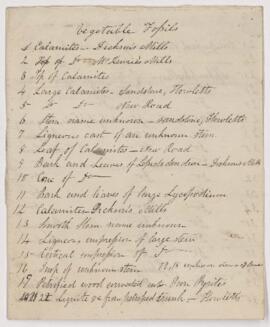 Vegetable Fossils
1 Calamites - Dickson's Mills
2 Top of Do McKenzie's Mills
3 Top of Calamite
4 Large Calamites - Sandstone, Howletts
5 Do Do New Road
6 Stem name unknown - sandstone, Howletts
7 Ligneous cast of an unknown stem
8 Leaf of Calamites - New Road
9 Bark and Leaves of Lepidodendron - Dickson's Mills
10 Cone of Do
11 Bark and leaves of large Lycopodium
12 Calamites Dickson's Mills
13 Smooth Stem name unknown
14 Ligneous impression of large stem
15 impression of Do
16 Imp of unknown stem
17 Petrified wood Iron Pyrites
Lignite &c from petrified trunk - Howletts